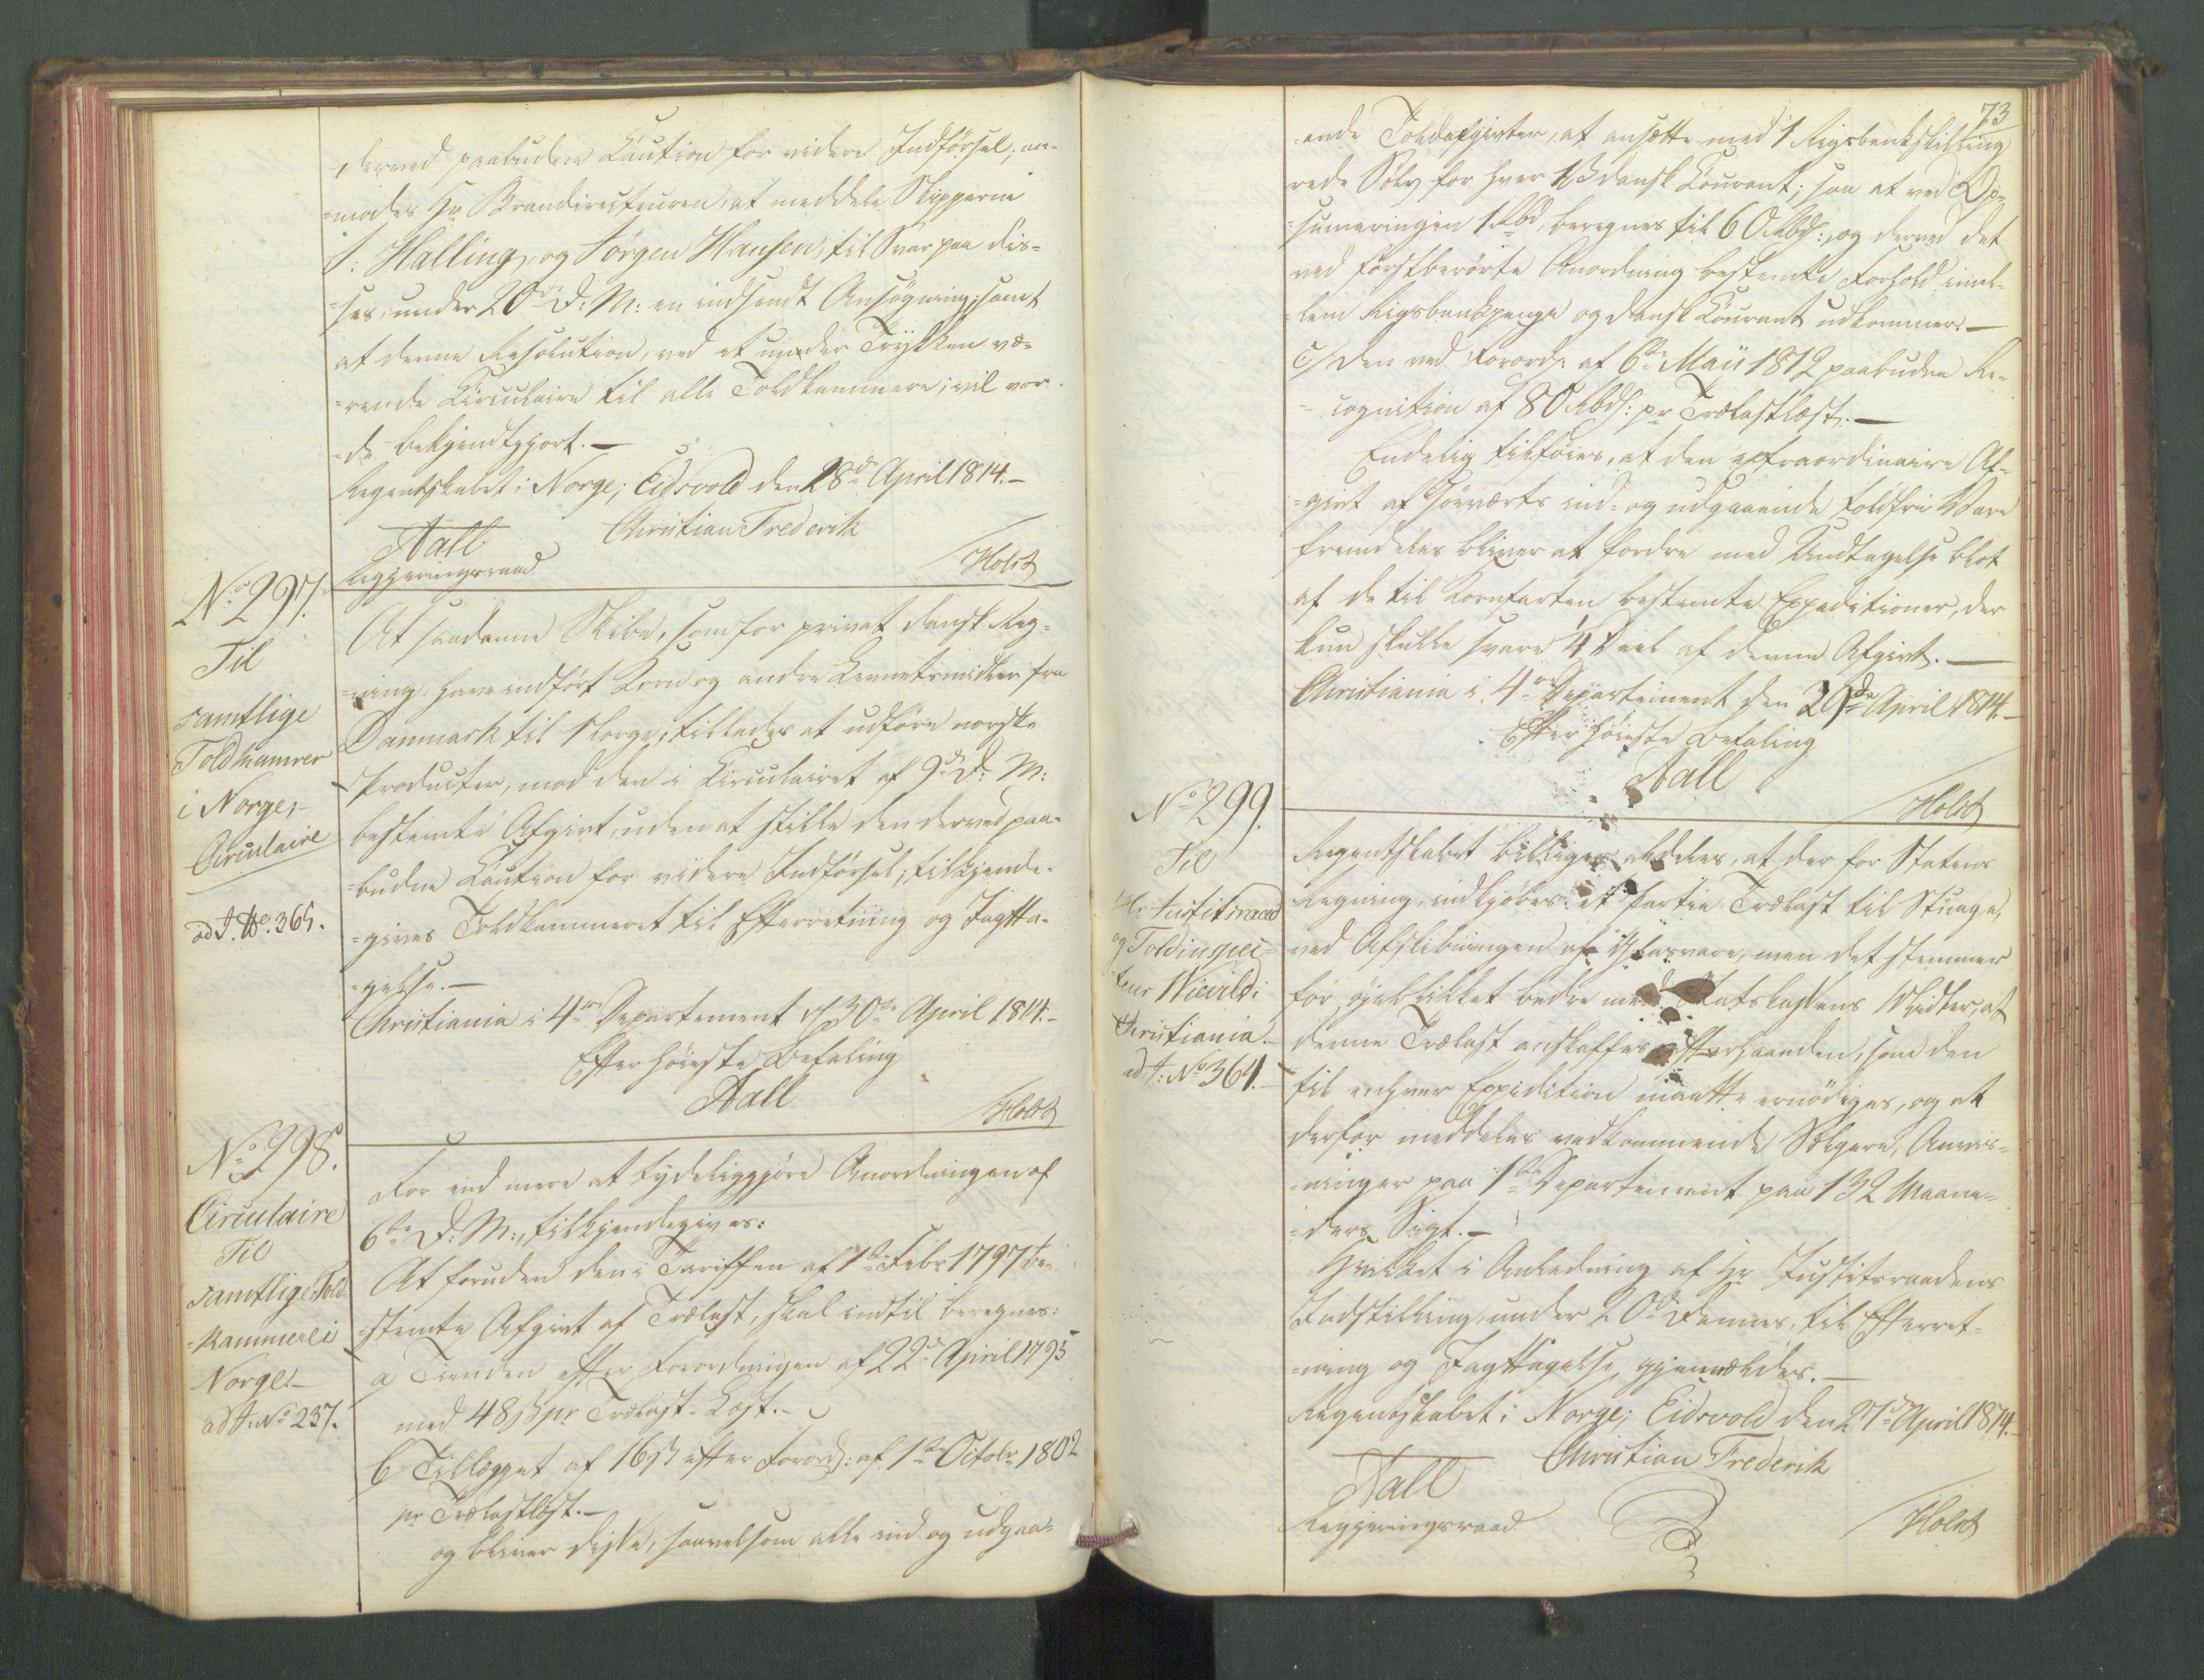 derved paabudne Caution for videre Indførsel; an-
=modes Hr Brandirecteuren, at meddele Skipperne
S: Halling, og Jørgen Hansen, til Svar paa dis-
=ses, under 20de d: M: indsendt Ansøgning; samt
at denne Resolution, ved et under Trykken væ-
=rende Circulaire til alle Toldkammere; vil vor-
=de bekjendtgjort.—
Regentskabet i Norge; Eidsvold den 28de April 1814.—
Christian Frederik
Aall
Regjeringsraad
Holst
No 297.
Til
samtlige
Toldkamrer
i Norge,—
Circulaire
ad J. No. 365.
At saadanne Skibe, som for privat dansk Reg-
=ning, have indført Korn og andre Levnetsmidler fra
Danmark til Norge, tillades at udføre norske
Producter, mod den i Circulairet af 9de d: M:
bestemte Afgivt, uden at stille den derved paa-
=budne Caution for videre Indførsel; tilkjende-
=gives Toldkammeret til Efterretning og Iagtta-
=gelse.—
Christiania i 4de Departement d 30te April 1814.—
Efter høieste Befaling
Aall
Holst
No 298.
Circulaire
Til
samtlige Told-
=kammere i
Norge.—
ad J: No 237.
For end mere at tydeliggjøre Anordningen af
6te d: M:, tilkjendegives:
At foruden den i Tariffen af 1ste Febr 1797 be-
=stemte Afgivt af Trælast, skal indtil beregnes:
a Tienden efter Forordningen af 22de April 1795
med 48 ß pr Trælast-Læst.—
b Tillægget af 16 ß efter Forord: af 1ste Octobr 1802
pr Trælastlæst.—
og bliver disse, saavelsom alle ind og udgaa-
73
=ende Toldafgivter, at ansætte med 1 Rigsbankskilling
rede Sølv for hver 1 ß dansk Courant; saa at ved Op-
=sumeringen 1 Rbd, beregnes til 6 Rbd:, og derved det
ved førstberørte Anordning bestemte Forhold imel-
=lem Rigsbankpenge og dansk Courant udkommer.—
c/ Den ved Forord: af 6te Maii 1812 paabudne Re-
=cognition af 80 Rbdß: pr Trælastlæst.—
Endelig tilføies, at den extraordinaire Af-
=givt af søeværts ind- og udgaaende toldfri Vare
fremdeles bliver at fordre med Undtagelse blot
af de til Kornfarten bestemte Expeditioner, der
kun skulle svare 1/4 Deel af denne Afgivt.—
Christiania i 4de Departement den 29de April 1814.—
Efter høieste Befaling
Aall
Holst
No 299.
Til
Hr Justitsraad
og Toldinspec-
teur Wievild i
Christiania.—
ad J: No 364.—
Regentskabet billiger aldeles, at der for Statens
Regning, indkjøbes et Partie Trælast til Stuage,
ved Afskibningen af Glasvare, men det stemmer
for øieblikket bedre med Statskassens Midler, at
denne Trælast anskaffes efterhaanden, som den
til enhver Expidition maatte ernødiges, og at
derfor meddeles vedkommende Sælgere, Anvis-
=ninger paa 1ste Departement paa 1 á 2 Maane-
=ders Sigt.—
Hvilket i Anledning af Hr Justitsraadens
Indstilling, under 20de dennes, til Efterret-
=ning og Iagttagelse, gjenmeldes.—
Regentskabet i Norge; Eidsvold den 27de April 1814.—
Christian Frederik
Aall
Regjeringsraad
Holst